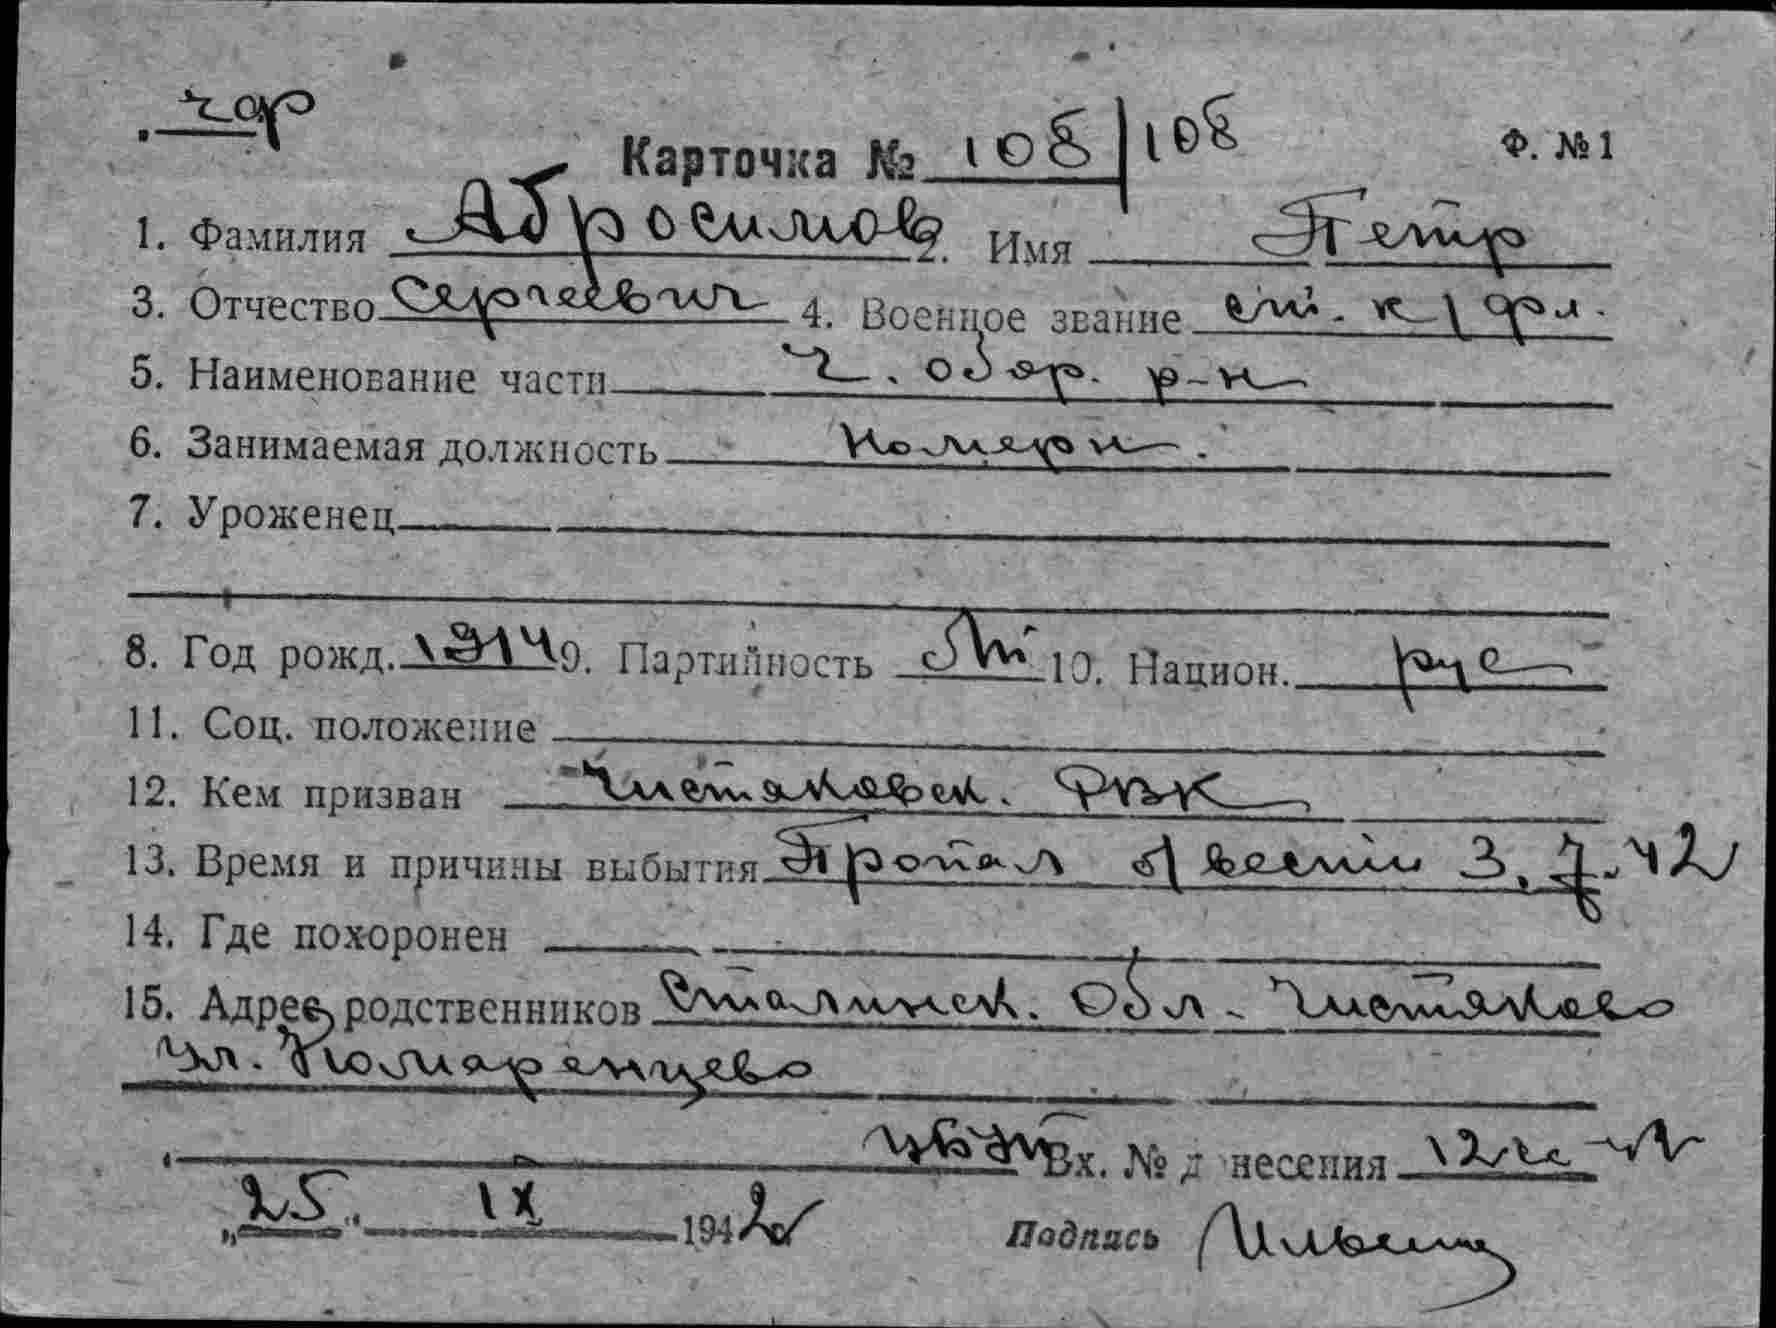 чф
Карточка № 108/108 Ф. №1
1. Фамилия Абросимов 2. Имя Петр
3. Отчество Сергеевич 4. Военное звание ст. к/фл.
5. Наименование части Ч. обор. р-н
6. Занимаемая должность комерн.
7. Уроженец
8. Год рожд. 1914 9. Партийность 10. Национ. рус
11. Соц. положение
12. Кем призван Чистяковск. РВК
13. Время и причины выбытия Пропал б/вести 3.7.42
14. Где похоронен
15. Адрес родственников Сталинск. Обл. Чистяково
ул. Комаренцево
Вх. № д несения
„25“ IX 1942 Подпись